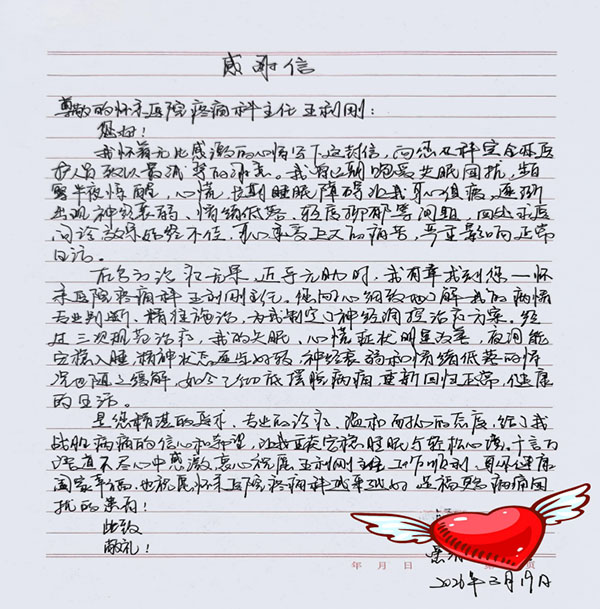 感谢信
尊敬的怀柔医院疼痛科主任王利刚：
您好！
我怀着无比感激的心情写下这封信，向您及科室全体医
护人员致以最诚挚的谢意。我 长期饱受失眠困扰，
半夜惊醒，心慌，长期睡眠障碍让我身心俱疲，逐渐
出现神经衰弱、情绪低落、轻度抑郁等问题，四处求医
问诊效果始终不佳，身心承受巨大的病苦，严重影响正常
生活。
在多方治疗无果，近乎无助时，我有幸找到您一怀
柔医院疼痛科王利刚主任。您耐心细致的了解我的病情
专业判断、精准施治，为我制定了神经调控治疗方案。经
过三次规范治疗，我的失眠、心慌症状明显改善，夜间能
安稳入睡，精神状态逐步好转，神经衰弱和情绪低落的情
况也随之缓解，如今已彻底摆脱病痛，重新回归正常、健康
的生活。
是您精湛的医术、专业的诊疗、温和而耐心的态度，给了我
战胜病痛的信心和希望，让我重获安稳睡眠与轻松心境。千言万
语道不尽心中感激，衷心祝愿王利刚主任工作顺利、身体健康
阖家幸福，也祝愿怀柔医院疼痛科越来越好，造福更多病痛困
扰的患者！
此致
敬礼！
年 月 日
页
2026年3月19日